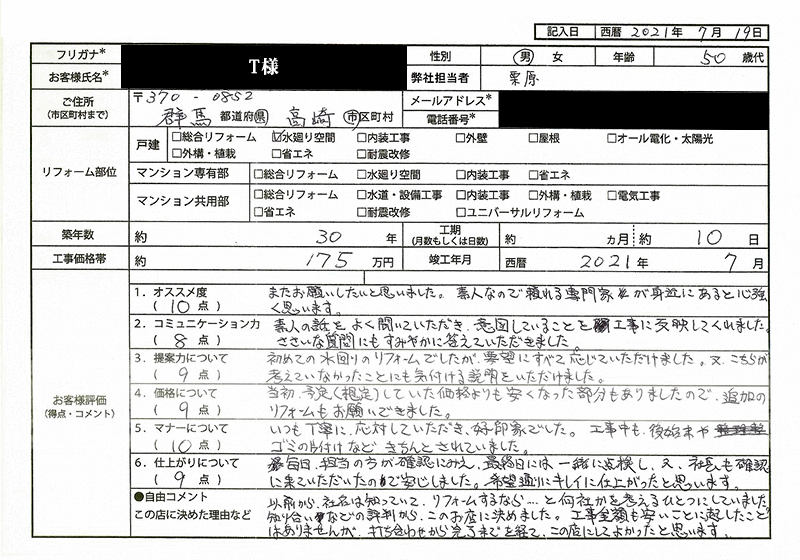 記入日 西暦 2021年 7月 19日
フリガナ* T様 性別 男 女 年齢 50 歳代
お客様氏名* 弊社担当者 栗原
ご住所 (市区町村まで) 〒370-0852 メールアドレス*
群馬 都道府県 高崎 市区町村 電話番号*
リフォーム部位
戸建 □総合リフォーム ☑水廻り空間 □内装工事 □外壁 □屋根 □オール電化・太陽光
□外構・植栽 □省エネ □耐震改修
マンション専有部 □総合リフォーム □水廻り空間 □内装工事 □省エネ
マンション共用部 □総合リフォーム □水道・設備工事 □内装工事 □外構・植栽 □電気工事
□省エネ □耐震改修 □ユニバーサルリフォーム
築年数 約 30 年 工期 (月数もしくは日数) 約 カ月 約 10 日
工事価格帯 約 175 万円 竣工年月 西暦 2021年 7月
お客様評価 (得点・コメント)
1.オススメ度 (10点) またお願いしたいと思いました。素人なので頼れる専門家が身近にあると心強
く思います。
2.コミュニケーション力 (8点) 素人の話をよく聞いていただき、意図していることを工事に反映してくれました。
ささいな質問にもすみやかに答えていただきました。
3.提案力について (9点) 初めての水回りのリフォームでしたが、要望にすべて応じていただけました。又、こちらが
考えていなかったことにも気付ける説明をいただけました。
4.価格について (9点) 当初、予定(想定)していた価格よりも安くなった部分もありましたので、追加の
リフォームもお願いできました。
5.マナーについて (10点) いつも丁寧に、応対していただき、好印象でした。工事中も、後始末や
ゴミの片付けなどきちんとされていました。
6.仕上がりについて (9点) 毎日、担当の方が確認にみえ、最終日には一緒に点検し、又、社長も確認
に来ていただいたので安心しました。希望通りにキレイに仕上がったと思います。
●自由コメント この店に決めた理由など 以前から、社名は知っていて、リフォームするなら…と何社かを考えるひとつにしていました。
知り合いなどの評判から、このお店に決めました。工事金額も安いことに越したこと
はありませんが、打ち合わせから完了までを経て、この店にしてよかったと思います。